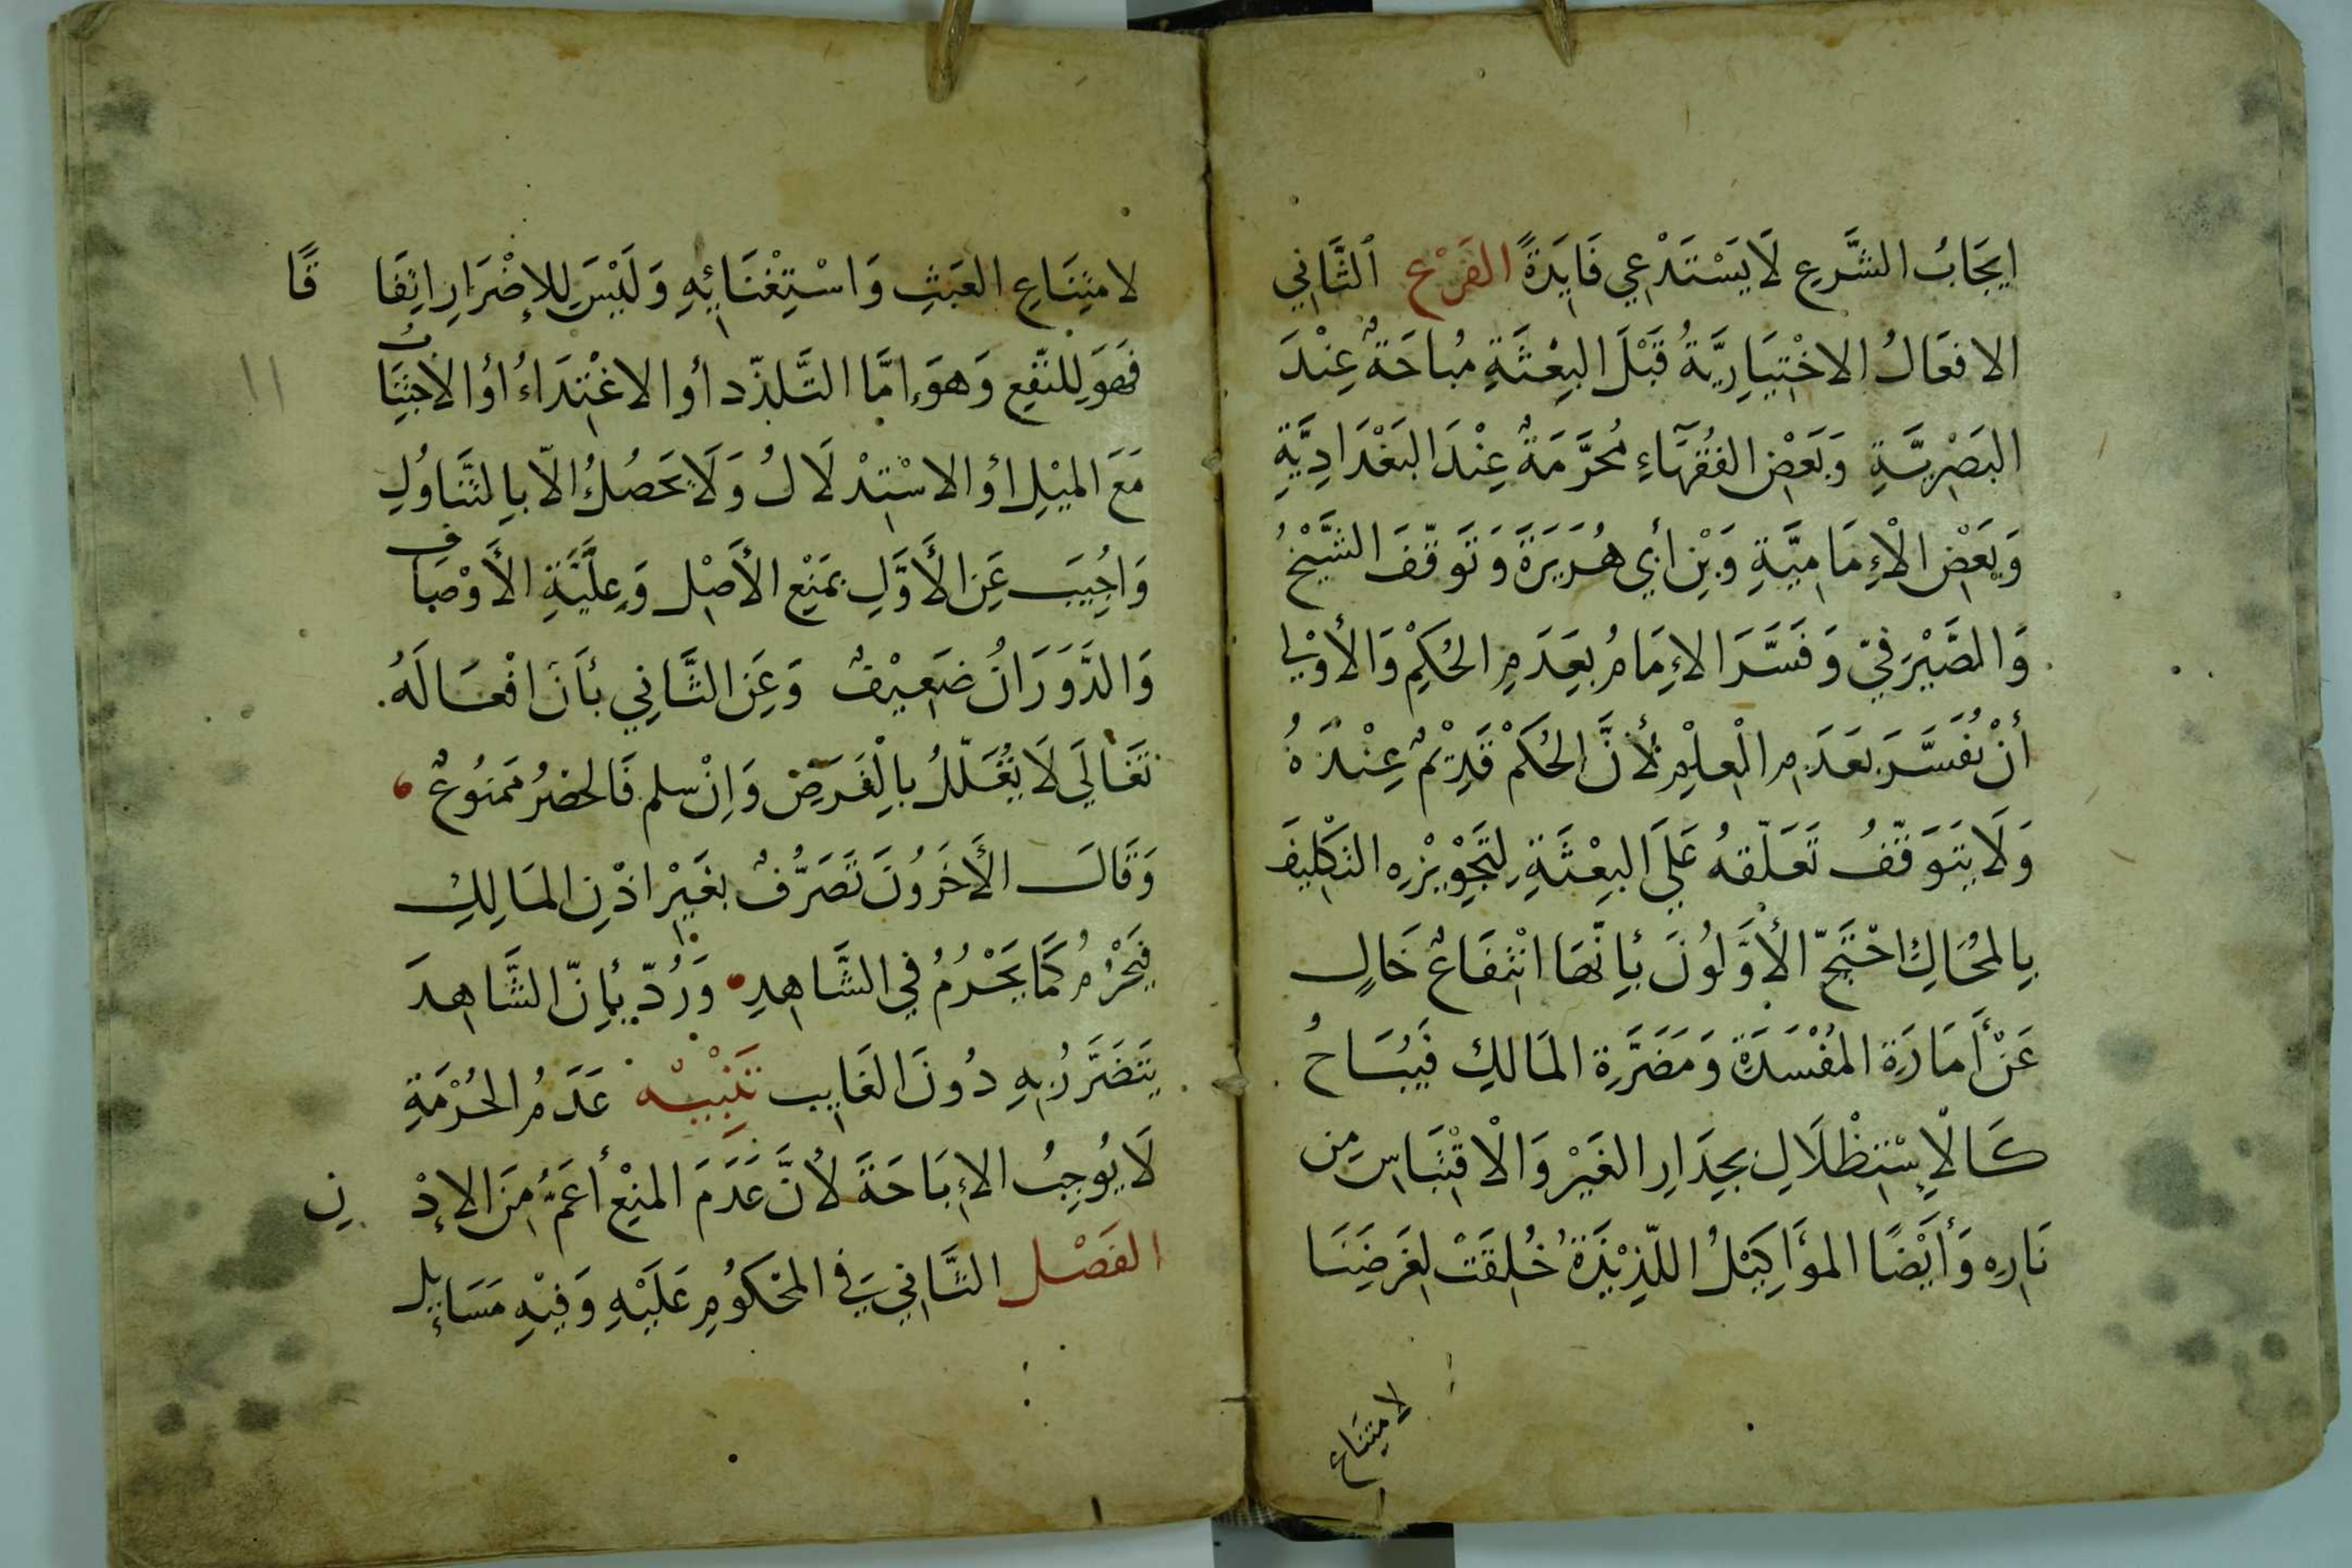 ايجَابُ الشَّرعِ لَا يَسْتَدْعِي فَايِدَةً الفَرْع الثَّانِي
الافعَالُ الاخْتِيَارِيَّةُ قَبْلَ البِعْثَةِ مُبَاحَةٌ عِنْدَ
البَصْرِيَّةِ وَبَعْضِ الفُقَهَاءِ مُحَرَّمَةٌ عِنْدَ البَغْدَادِيَّةِ
وَبَعْضِ الْإِمَامِيَّةِ وَبْنِ أَبِي هُرَيَرَةَ وَتَوَقّفَ الشَّيْخُ
وَالصَّيْرَفِيّ وَفَسَّرَ الإِمَامُ بِعَدَمِ الحُكِمْ وَالأَوْلى
أنْ يُفَسَّرَ بعَدَمِ الْعِلْمِ لأَنَّ الحُكمْ قَدِيْمٌ عِنْدَهُ
وَلَا يَتَوَقّفُ تَعَلّقهُ عَلَى البِعْثَةِ لِتَجْوِيْزِهِ التَكْلِيفَ
بِالمُحَالِ احْتَجّ الأوَّلُونَ بأِنّهَا انْتِفَاعٌ خَالٍ
عَنْ أَمَارَةِ المُفْسَدَةِ وَمَضَرَّةِ المَالكِ فَيُبَاحُ
كَالْإِسْتِظْلَالِ بجِدَارِ الغَيْر وَالْاقْتِبَاسِ مِن
نَارِهِ وَأَيْضًا المؤَاكِيْلُ اللّذِيْذَةُ خُلِقَتْ لِغَرضِنَا
لامتِنَاع
لامتِنَاعِ العَبَثِ وَاسْتِغْنَائِهِ وَلَيْسَ لِلإضْرَارِ اتِفَاقًا
فَهوَ لِلنّفِع وَهوَ إمَّا التَّلذّد أو الاغْتِدَاءُ اؤ الاجْتِنَابُ
مَعَ الميْلِ اؤ الاسْتِدْلَالُ وَلَا يَحَصُلُ الاّ بالتَّنَاوُلِ
وَاجُيِبَ عَنِ الأَوَّلِ بمَنْعِ الأَصْلِ وَعِلّيَّةِ الأَوْصَافِ
وَالدَّوَرَانُ ضَعِيْفٌ وَعَنِ الثَّانِي بأَنَ افْعَالَهُ
تَعَالَى لَا تُعَلّلُ بِالْغَرَضِ وَانْ سلم فَالحضرُ مَمنُوعٌ
وَقَالَ الأَخَرُونَ تَصَرُّفٌ بغَيْرِ اذْنِ المَالِكِ
فيَحْرُمُ كَمَا يَحْرُمُ فِي الشَّاهِدِ وَرُدّ بأِنّ الشَّاهِدَ
يَتَضَرَّرُ بِهِ دُونَ الغَايِبِ تَنْبِيْه عَدَمُ الحُرْمَةِ
لَا يُوجِبُ الإِبَاحَةَ لأَنَّ عَدَمَ المنْعِ أعَمُّ مِنَ الإِذْنِ
الفَصْل الثَّانِي فِي المحْكوُمِ عَلَيْهِ وَفِيْهِ مَسَايِل
١١